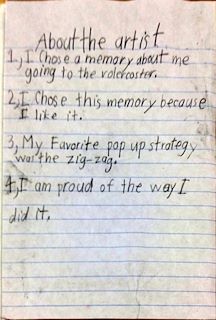 About the artist
1, I Chose a memory about me
going to the rolercoster.
2, I Chose this memory because
I like it.
3, My Favorite pop up strategy
was the zig-zag.
4, I am proud of the way I
did it.